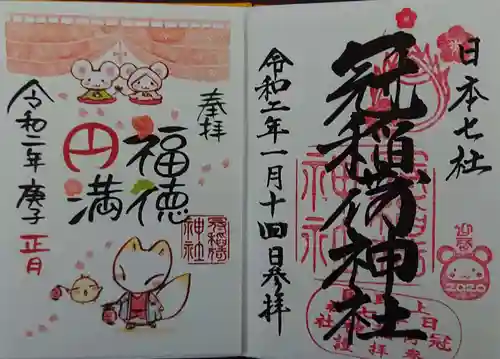 日本七社
冠稲荷神社
令和二年一月十四日参拝
迎春
2020
奉拝
福徳
円満
冠稲荷
神社
令和二年 庚子 正月